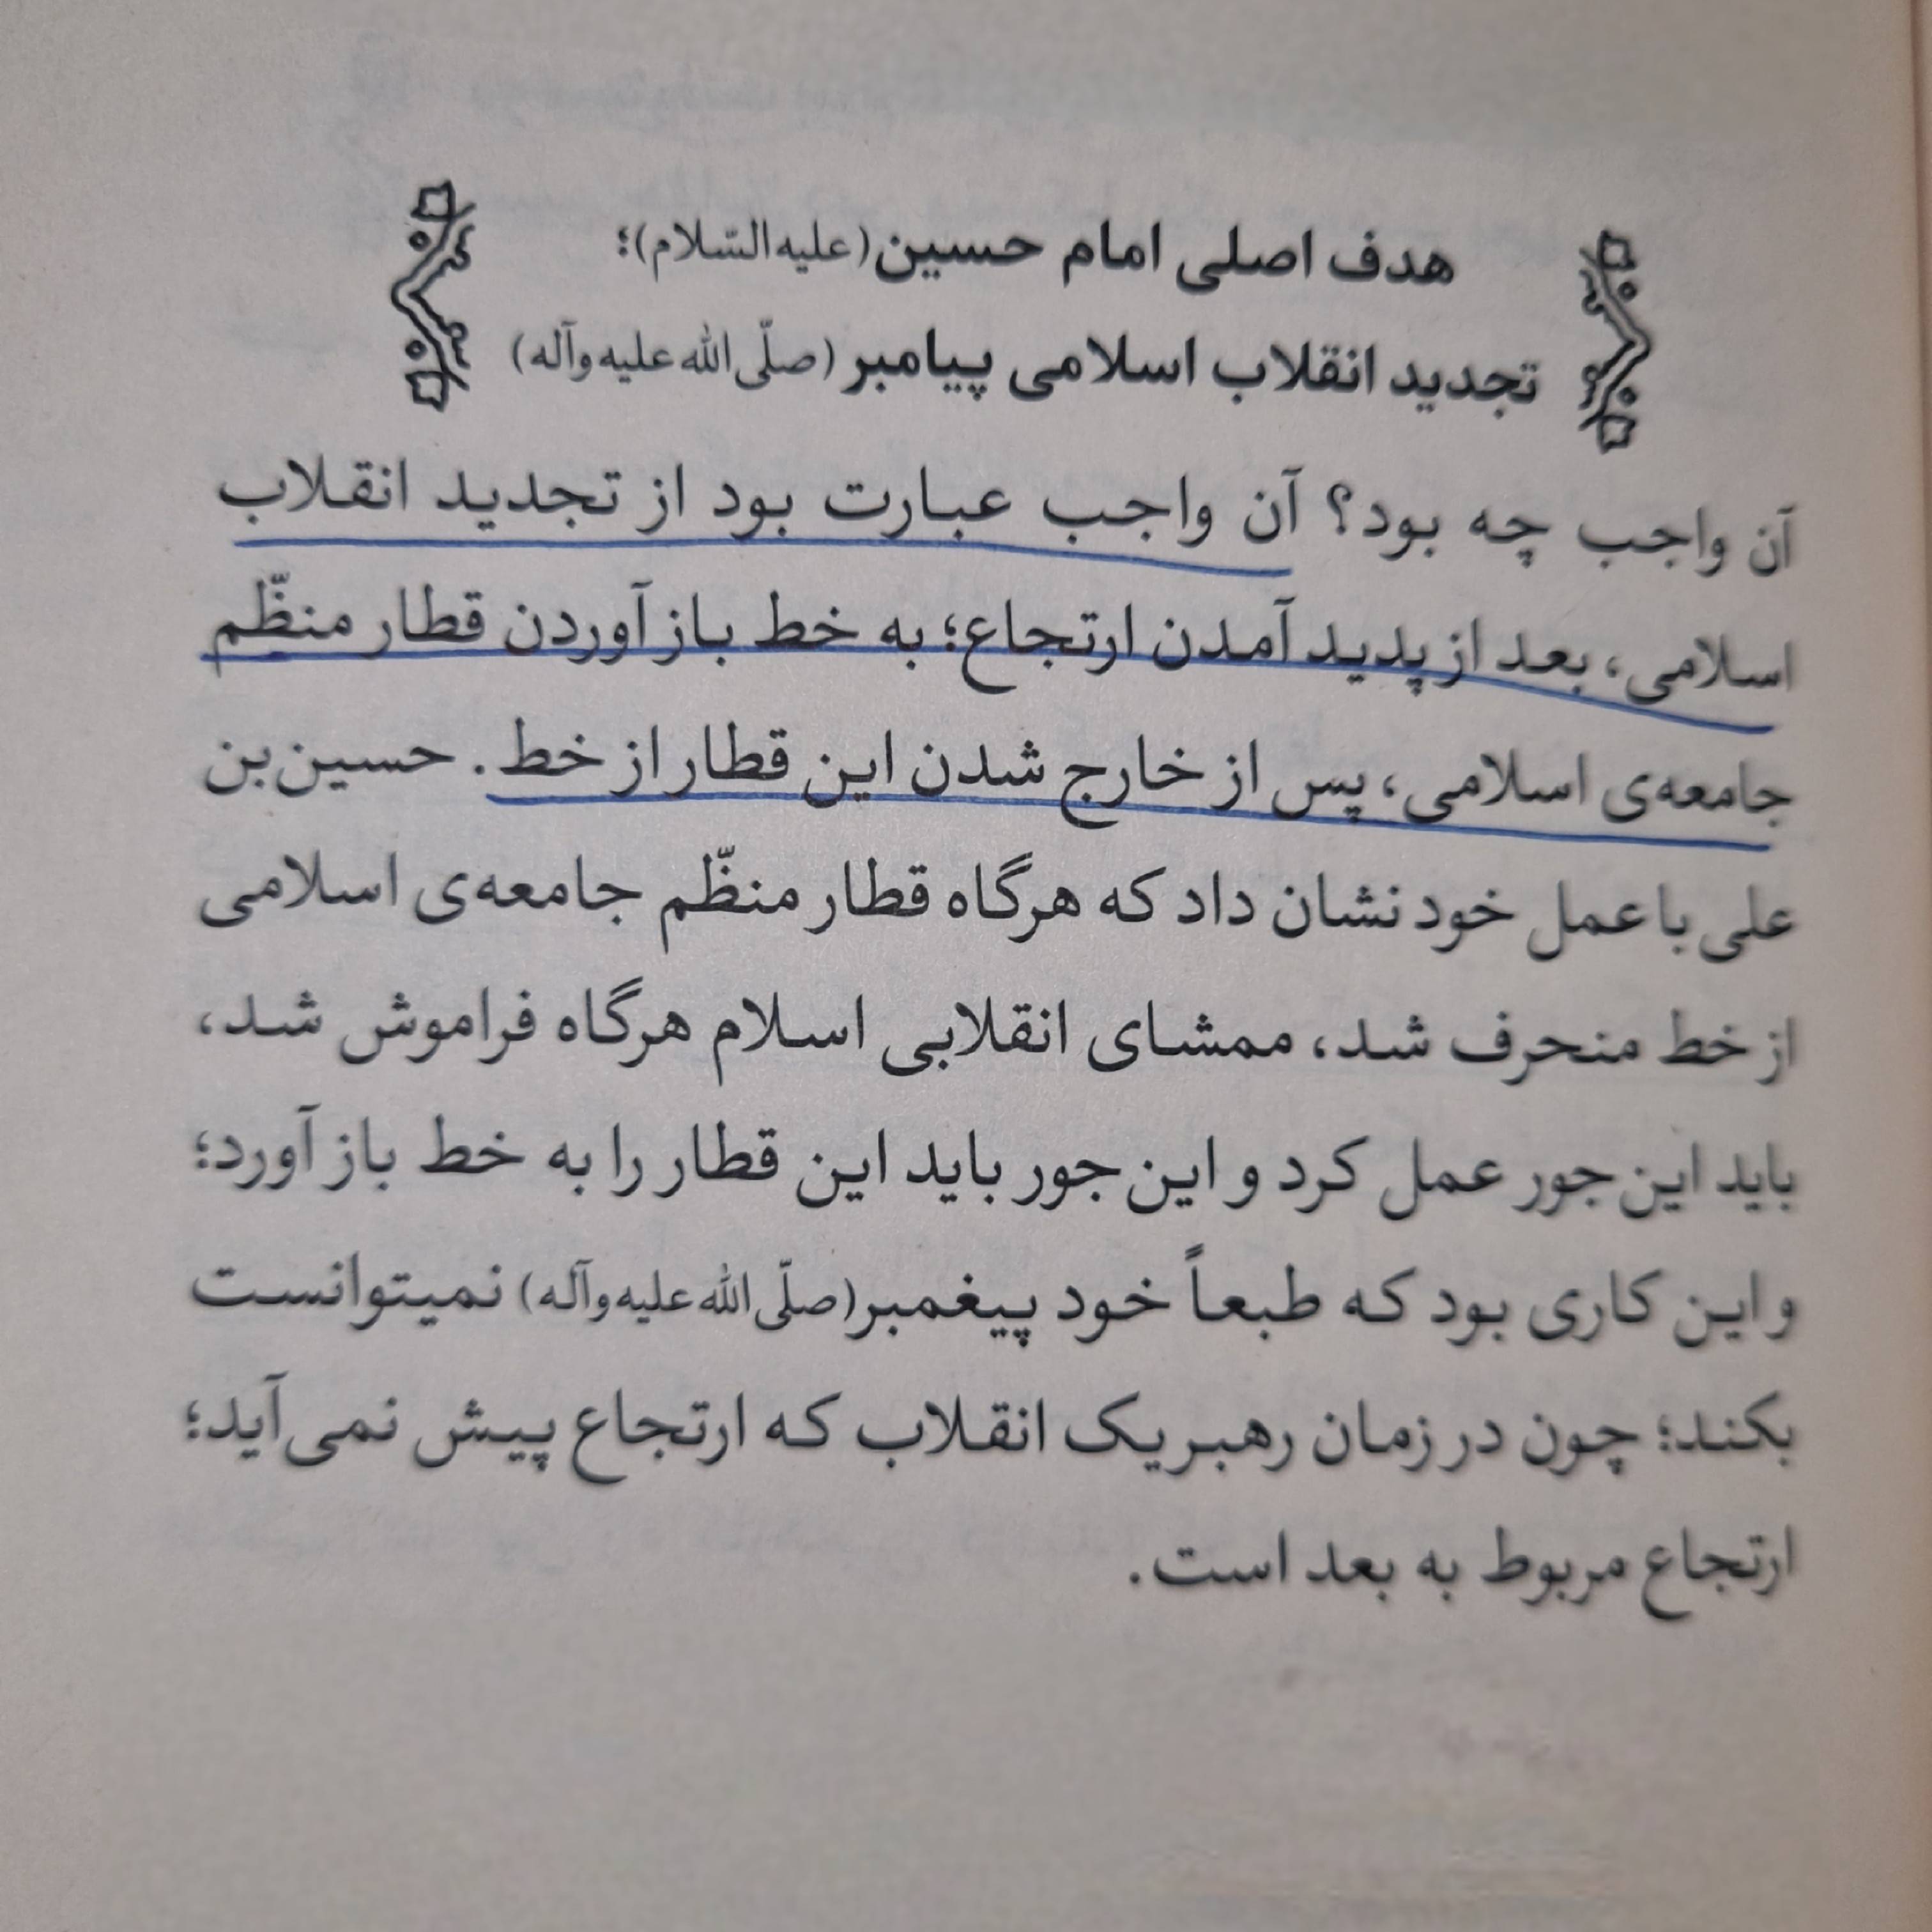 هدف اصلی امام حسین(علیه‌السّلام)؛
تجدید انقلاب اسلامی پیامبر (صلّی‌الله‌علیه‌وآله)
آن واجب چه بود؟ آن واجب عبارت بود از تجدید انقلاب
اسلامی، بعد از پدید آمدن ارتجاع؛ به خط باز آوردن قطار منظّم
جامعه‌ی اسلامی، پس از خارج شدن این قطار از خط. حسین‌بن
علی با عمل خود نشان داد که هرگاه قطار منظّم جامعه‌ی اسلامی
از خط منحرف شد، ممشای انقلابی اسلام هرگاه فراموش شد،
باید این‌جور عمل کرد و این‌جور باید این قطار را به خط باز آورد؛
و این کاری بود که طبعاً خود پیغمبر(صلّی‌الله‌علیه‌وآله) نمیتوانست
بکند؛ چون در زمان رهبر یک انقلاب که ارتجاع پیش نمی‌آید؛
ارتجاع مربوط به بعد است.